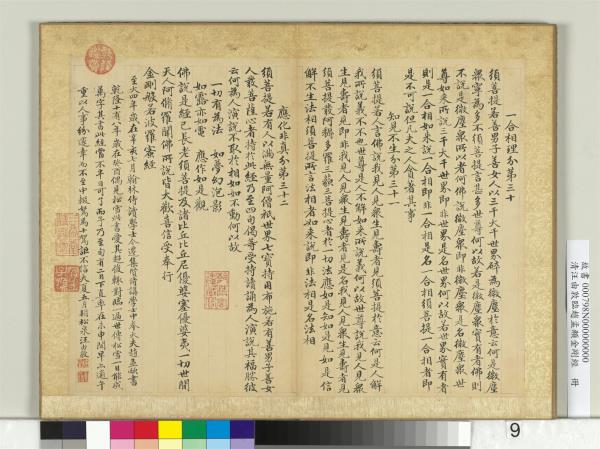 一合相理分第三十
須菩提若善男子善女人以三千大千世界碎為微塵於意云何是微塵
眾寧為多不須菩提言甚多世尊何以故若是微塵眾實有者佛則
不說是微塵眾所以者何佛說微塵眾即非微塵眾是名微塵眾世
尊如來所說三千大千世界即非世界是名世界何以故若世界實有者
則是一合相如來說一合相即非一合相是名一合相須菩提一合相者即
是不可說但凡夫之人貪著其事
知見不生分第三十一
須菩提若人言佛說我見人見眾生見壽者見須菩提於意云何是人解
我所說義不不也世尊是人不解如來所說義何以故世尊說我見人見眾
生見壽者見即非我見人見眾生見壽者見是名我見人見眾生見壽者見
須菩提發阿耨多羅三藐三菩提心者於一切法應如是知如是見如是信
解不生法相須菩提所言法相者如來說即非法相是名法相
應化非真分第三十二
須菩提若有人以滿無量阿僧祇世界七寶持用布施若有善男子善女
人發菩薩心者持於此經乃至四句偈等受持讀誦為人演說其福勝彼
云何為人演說不取於相如如不動何以故
一切有為法　如夢幻泡影
如露亦如電　應作如是觀
佛說是經已長老須菩提及諸比丘比丘尼優婆塞優婆夷一切世間
天人阿修羅聞佛所說皆大歡喜信受奉行
金剛般若波羅蜜經
至大四年歲在辛亥七月翰林侍讀學士
乾隆十有八年歲在癸酉偶見松雪此書愛其超俊輒對臨一過世傳松雪一日能成
萬字其書此經當不半日可了
重以人事紛遝幸而不至中輟 五月朔松泉汪由敦
故書 000798N000000000
清汪由敦臨趙孟頫金剛經 冊
9